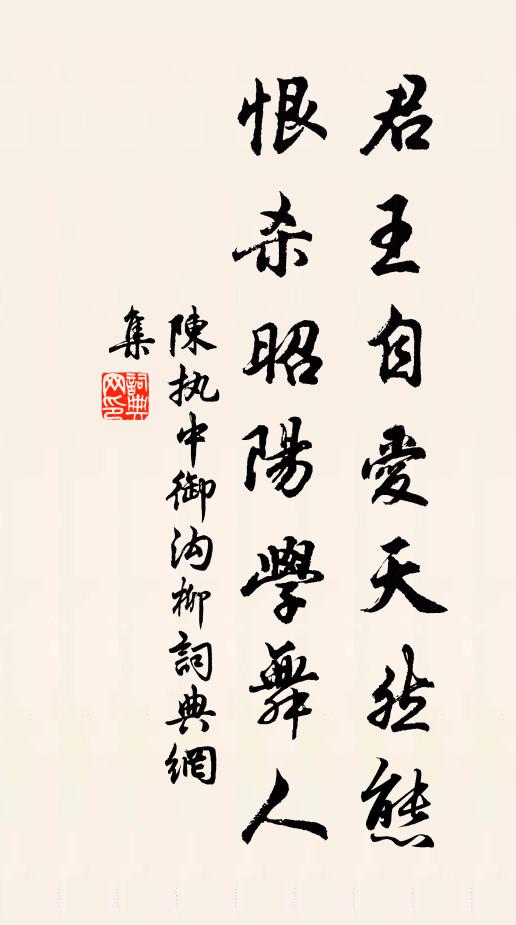 君王自愛天然態
恨杀昭陽學舞人
陳执中御沟柳詞典網
集
詞典网印